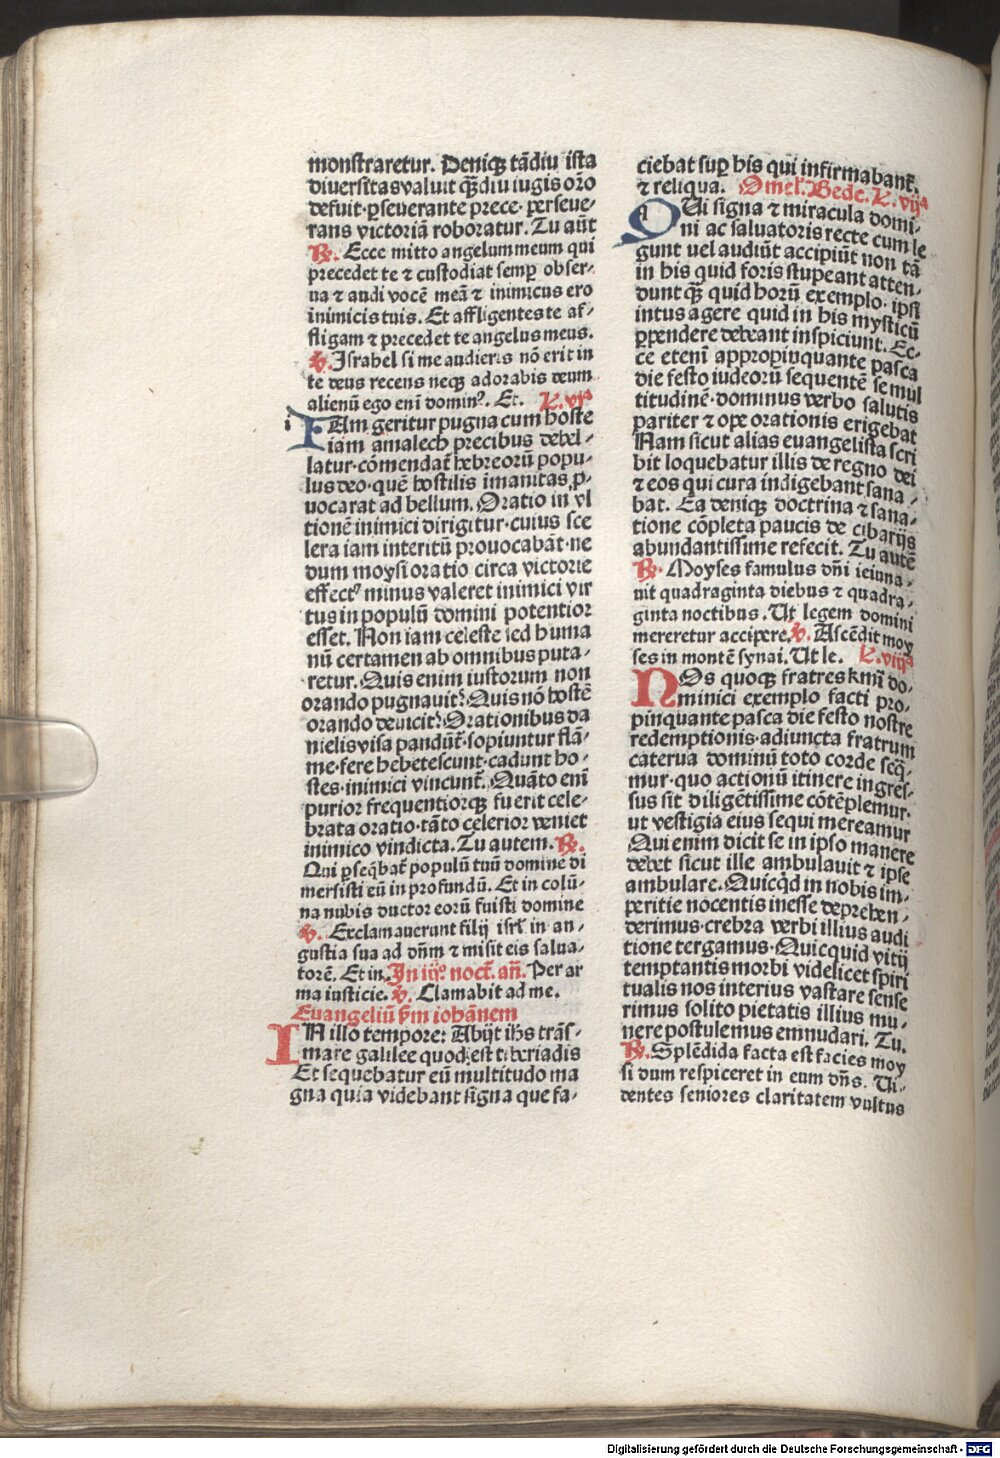 monstraretur. Deniqꝫ tādiu ista
diuersitas valuit qꝫ̄diu iugis orō
defuit·ꝑseuerante prece· perseue-
rans victoriā roboratur. Tu aūt
℟. Ecce mitto angelum meum qui
precedet te ⁊ custodiat semꝑ obser-
ua ⁊ audi vocē meā ⁊ inimicus ero
inimicis tuis. Et affligentes te af-
fligam ⁊ precedet te angelus meus.
℣. Israhel si me audieris nō erit in
te deus recens neqꝫ adorabis deum
alienū ego eni domin⁹. Et. L. vjᵃ
i IAm geritur pugna cum hoste
iam amalech precibus debel-
latur·cōmendat̄ hebreorū popu-
lus deo·quē hostilis imanitas ꝓ-
uocarat ad bellum. Oratio in vl
tionē inimici dirigitur·cuius sce
lera iam interitū prouocabāt·ne
dum moysi oratio circa victorie
effect⁹ minus valeret inimici vir
tus in populū domini potentior
esset. Non iam celeste sed huma
nū certamen ab omnibus puta-
retur. Quis enim iustorum non
orando pugnauit? Quis nō hostē
orando deuicit? Orationibus da
nielis visa pandūt̄·sopiuntur flā-
me·fere hebetescunt·cadunt ho-
stes·inimici vincunt̄. Quāto eni
purior frequentiorqꝫ fuerit cele-
brata oratio·tāto celerior veniet
inimico vindicta. Tu autem. ℟.
Qui ꝑseq̄bat̄ populū tuū domine di
mersisti eū in profundū. Et in colū-
na nubis ductor eorū fuisti domine
℣. Exclamauerunt filij isrl̄ in an-
gustia sua ad dn̄m ⁊ misit eis salua-
torē. Et in. In iijº. noct̄. an̄. Per ar
ma iusticie. ℣. Clamabit ad me.
Euangeliū ẜm iohānem
IN illo tempore: Abijt ihs trās-
mare galilee quod est tiberiadis
Et sequebatur eū multitudo ma
gna quia videbant signa que fa-
ciebat suꝑ his qui infirmabant̄.
⁊ reliqua. Omel̄. Bede. L. vijᵃ
q QUi signa ⁊ miracula domi-
ni ac saluatoris recte cum le
gunt uel audiūt accipiūt non tā
in his quid foris stupeant atten-
dunt qꝫ̄ quid horū exemplo· ipsi
intus agere quid in his mysticū
ꝑpendere debeant inspiciunt. Ec-
ce eteni appropinquante pasca
die festo iudeorū sequentē se mul
titudinē·dominus verbo salutis
pariter ⁊ ope orationis erigebat
Nam sicut alias euangelista scri
bit loquebatur illis de regno dei
⁊ eos qui cura indigebant sana-
bat. Ea deniqꝫ doctrina ⁊ sana-
tione cōpleta paucis de cibarijs
abundantissime refecit. Tu autē
℟. Moyses famulus dn̄i ieiuna-
uit quadraginta diebus ⁊ quadra-
ginta noctibus. Ut legem domini
mereretur accipere. ℣. Ascēdit moy
ses in montē synai. Ut le. L. viijᵃ
NOs quoqꝫ fratres kmi do-
minici exemplo facti pro-
pinquante pasca die festo nostre
redemptionis·adiuncta fratrum
caterua dominū toto corde seq̄-
mur·quo actionū itinere ingres-
sus sit diligētissime cōtēplemur·
ut vestigia eius sequi mereamur
Qui enim dicit se in ipso manere
debet sicut ille ambulauit ⁊ ipse
ambulare. Quicq̇d in nobis im-
peritie nocentis inesse deprehen-
derimus·crebra verbi illius audi
tione tergamus·Quicquid vitij
temptantis morbi videlicet spiri
tualis nos interius vastare sense
rimus solito pietatis illius mu-
nere postulemus emundari. Tu.
℟. Splēdida facta est facies moy
si dum respiceret in eum dn̄s. Ui-
dentes seniores claritatem vultus
Digitalisierung gefördert durch die Deutsche Forschungsgemeinschaft - DFG